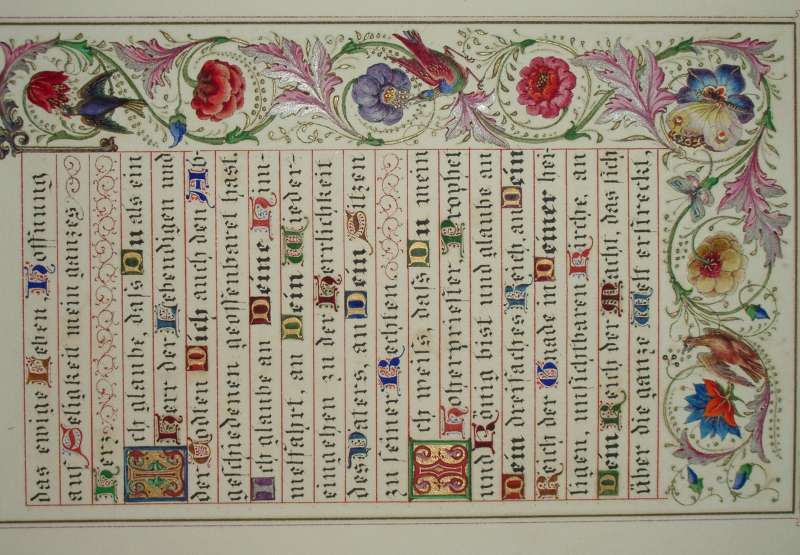 das ewige Leben Hoffnung
auf Seligkeit mein ganzes
Herz.
Ich glaube, daſs Du als ein
Herr der Lebendigen und
der Todten Dich auch den Ab-
geschiedenen geoffenbaret hast.
Ich glaube an Deine Him-
melfahrt, an Dein Wieder-
eingehen zu der Herrlichkeit
des Vaters, an Dein Sitzen
zu seiner Rechten
Ich weiſs daſs Du mein
Hoherpriester Prophet
und König bist und glaube an
Dein dreifaches Reich, an Dein
Reich der Gnade in Deiner hei-
ligen, unsichtbaren Kirche, an
Dein Reich der Macht, das sich
über die ganze Welt erstreckt,